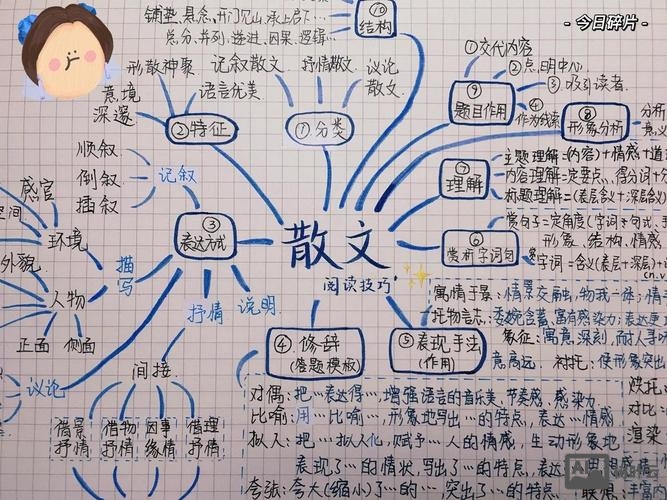 - 今日碎片 -
铺垫、悬念、开门见山、承上启下…
总分、并列、递进、因果、逻辑…
⑩
结构
①交代内容
②点明中心
③吸引读者
④
作为线索
⑨
题目作用
⑧
形象分析
分析
意义
形散神聚
语言优美
意境
深邃
②特征
记叙散文
抒情散文
议论
散文
①分类
⑦
理解
主题理解=(内容)+情感+道
内容理解=定要点、得分词+分
标题理解=(表层含义+深层含义
⑥
赏析字词句
赏句子=定角度(字词、句式、
形象、结构、情感
字词=含义(表层+深层)+
散文
阅读技巧
③
表达方式
记叙
顺叙
倒叙
插叙
描写
感官
空间
环境
外貌
人物
正面
侧面
议论
抒情
说明
间接
借景
抒情
借物
抒情
因事
缘情
借理
抒情
④修辞
(答题模板)
⑤表现手法
(作用)
寓情于景:情景交融,物我一体;情
托物言志:委婉含蓄,富有感染力;表达更
象征:寓意深刻,
意高远.
衬托:使形象突出
烘托
对比
渲染
对偶:把…表达得…,增强语言的音乐美、节奏感、感染力
比喻:用…比喻…,形象地写出…的特点,表达…情感
拟人:把…拟人化,赋予…人的情感,生动形象地
表现了…的情状,写出了…的特点,表达
夸张:夸大(缩小)了…的…,突出了…的特点.